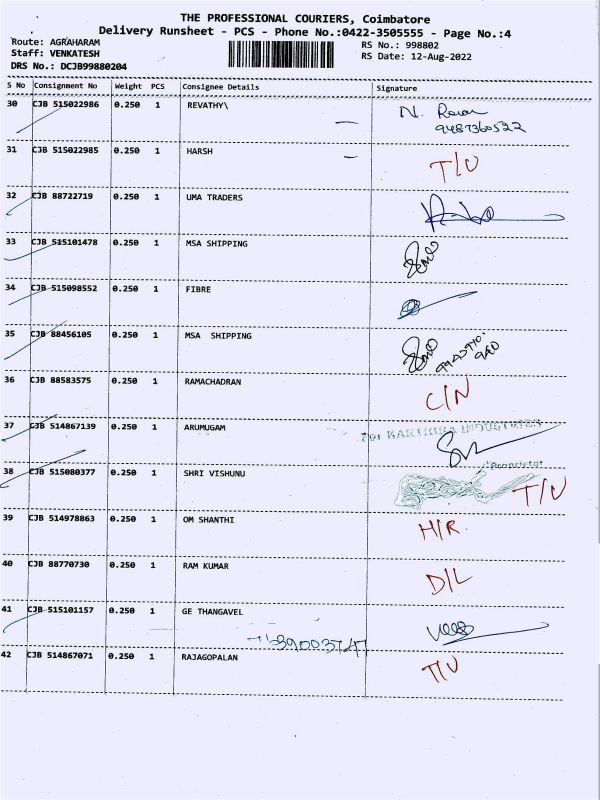 THE PROFESSIONAL COURIERS, Coimbatore
Delivery Runsheet - PCS - Phone No.:0422-3505555 - Page No.:4
Route: AGRAHARAM
RS No.: 998802
Staff: VENKATESH
RS Date: 12-Aug-2022
DRS No.: DCJB99880204
S No Consignment No Weight PCS Consignee Details Signature
30 CJB 515022986 0.250 1 REVATHY\ N.
9487360522
31 CJB 515022985 0.250 1 HARSH T/U
32 CJB 88722719 0.250 1 UMA TRADERS
33 CJB 515101478 0.250 1 MSA SHIPPING
34 CJB 515098552 0.250 1 FIBRE
35 CJB 88456105 0.250 1 MSA SHIPPING
36 CJB 88583575 0.250 1 RAMACHADRAN C/N
37 CJB 514867139 0.250 1 ARUMUGAM
For KARTHIKA INDUSTRIES
Proprietor
38 CJB 515080377 0.250 1 SHRI VISHUNU T/U
39 CJB 514978863 0.250 1 OM SHANTHI H/R
40 CJB 88770730 0.250 1 RAM KUMAR D/L
41 CJB 515101157 0.250 1 GE THANGAVEL
42 CJB 514867071 0.250 1 RAJAGOPALAN T/U